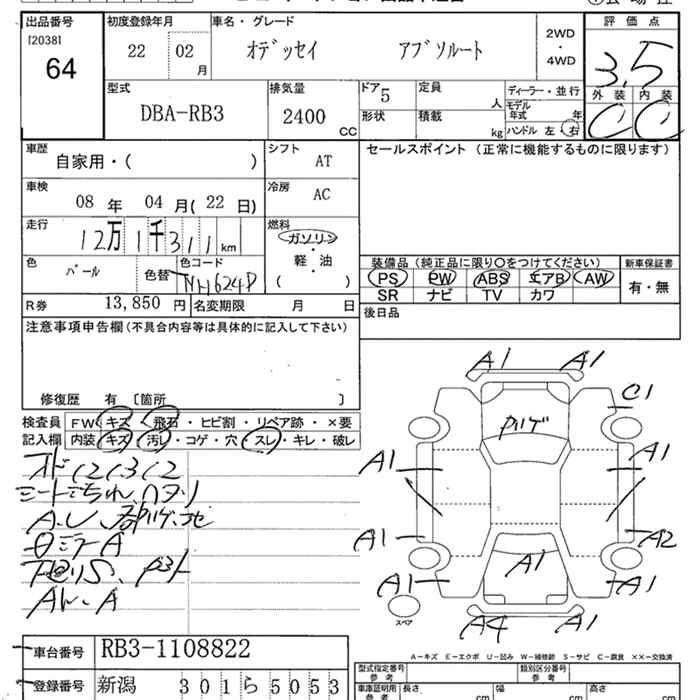 出品番号
[2038]
64
初度登録年月
22 02
月
車名・グレード
オデッセイ アブソルート
2WD
・
4WD
評価点
3.5
外装 内装
C C
型式
DBA-RB3
排気量
2400
CC
ドア 5
形状
定員
人
積載
kg
ディーラー・並行
モデル年式 年
ハンドル 左・右
車歴
自家用・( )
シフト
AT
セールスポイント (正常に機能するものに限ります)
車検
08 年 04 月( 22 日)
冷房
AC
走行
12万1千311km
燃料
ガソリン
・
軽・油
( )
色
パール
色替
色コード
NH624P
装備品 (純正品に限り○をつけてください)
PS PW ABS エアB AW
SR ナビ TV カワ
新車保証書
有・無
R券 13,850 円
名変期限 月 日
後日品
注意事項申告欄(不具合内容等は具体的に記入して下さい)
修復歴 有 〔箇所 〕
検査員
記入欄
FW キズ・飛石・ヒビ割・リペア跡・×要
内装 キズ・汚レ・コゲ・穴・スレ・キレ・破レ
A1 A1
C1
A1 A1
A1 A2
A1
A1 A1
A4 A1
スペア
A-キズ E-エクボ U-凹み W-補修跡 S-サビ C-腐食 ××-交換済
車台番号 RB3-1108822
登録番号 新潟 301ら5053
型式指定番号
参考
類別区分番号
参考
車庫証明用
参考
長さ cm
幅 cm
高さ cm